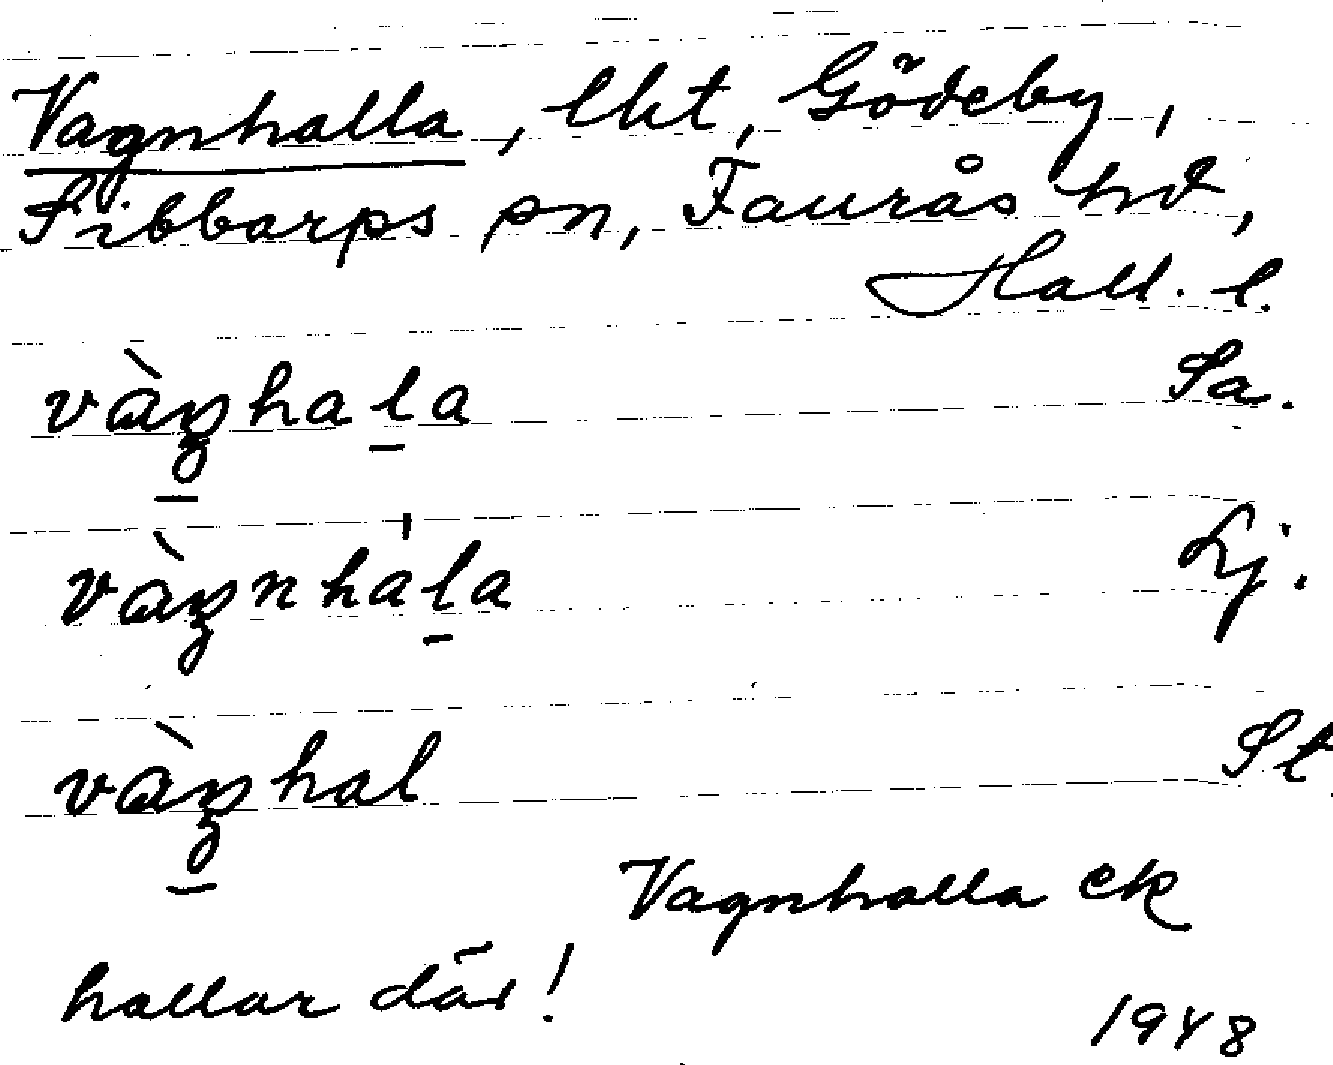 Vagnhalla, lht, Gödeby,
Sibbarps sn, Faurås hd,
Hall. l.
Sa.
Lj.
vàŋhal St
Vagnhalla ek
hallar där!
1948